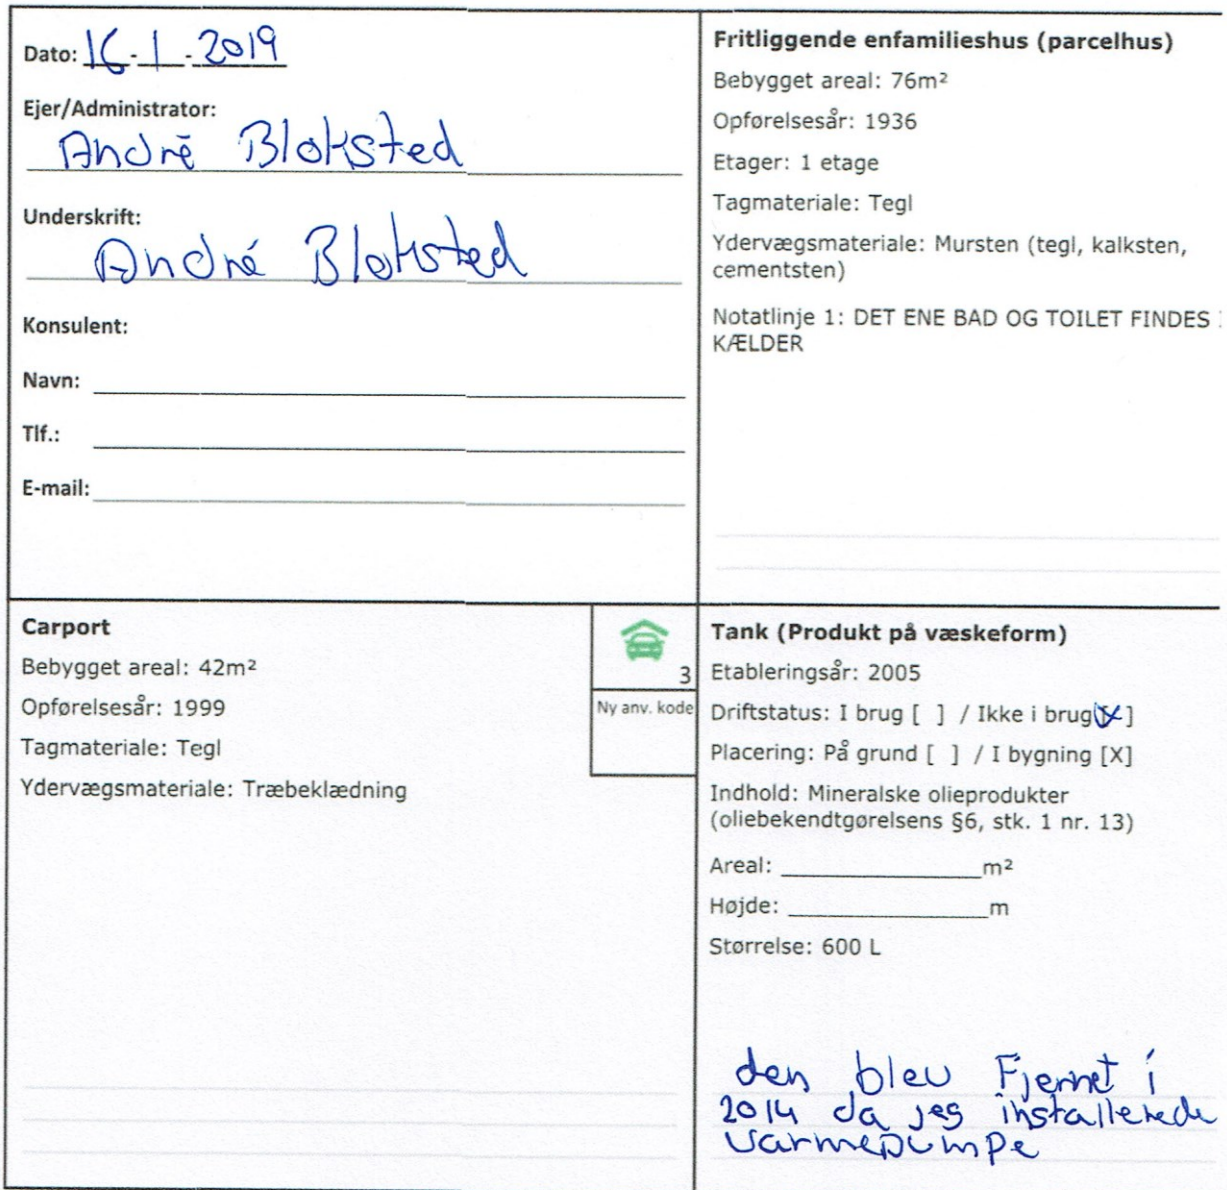 Dato: 16-1-2019
Ejer/Administrator:
André Bloksted
Underskrift:
André Bloksted
Konsulent:
Navn:
Tlf.:
E-mail:
Fritliggende enfamilieshus (parcelhus)
Bebygget areal: 76m²
Opførelsesår: 1936
Etager: 1 etage
Tagmateriale: Tegl
Ydervægsmateriale: Mursten (tegl, kalksten,
cementsten)
Notatlinje 1: DET ENE BAD OG TOILET FINDES
KÆLDER
Carport
Bebygget areal: 42m²
Opførelsesår: 1999
Tagmateriale: Tegl
Ydervægsmateriale: Træbeklædning
3
Ny anv. kode
Tank (Produkt på væskeform)
Etableringsår: 2005
Driftstatus: I brug [ ] / Ikke i brug [X]
Placering: På grund [ ] / I bygning [X]
Indhold: Mineralske olieprodukter
(oliebekendtgørelsens §6, stk. 1 nr. 13)
Areal: ______________m²
Højde: ______________m
Størrelse: 600 L
den blev Fjernet i
2014 da jeg installerede
varmepumpe